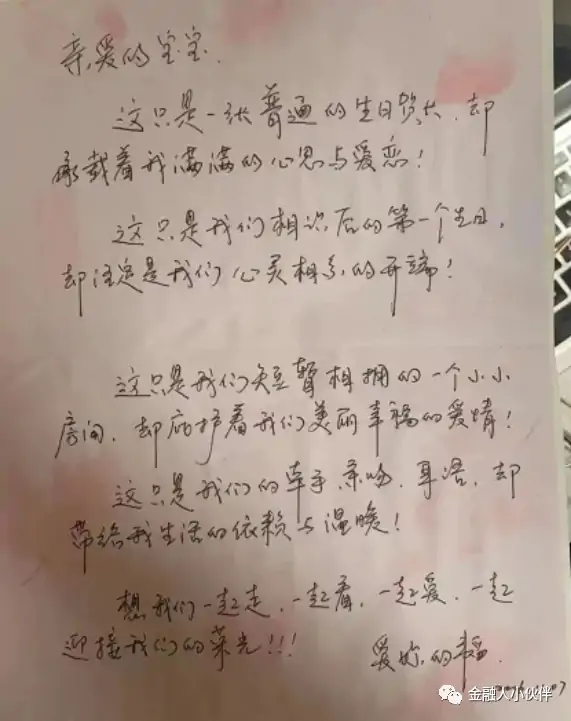 亲爱的宝宝.
这只是一张普通的生日贺卡.却
承载着我满满的心思与爱恋!
这只是我们相识后的第一个生日,
却注定是我们心灵相系的开端!
这只是我们短暂相拥的一个小小
房间、却庇护着我们美丽幸福的爱情!
这只是我们的牵手、亲吻、耳语、却
带给我生活的依赖与温暖!
想我们一起走、一起看、一起爱、一起
迎接我们的荣光!!!
爱你的
金融人小伙伴